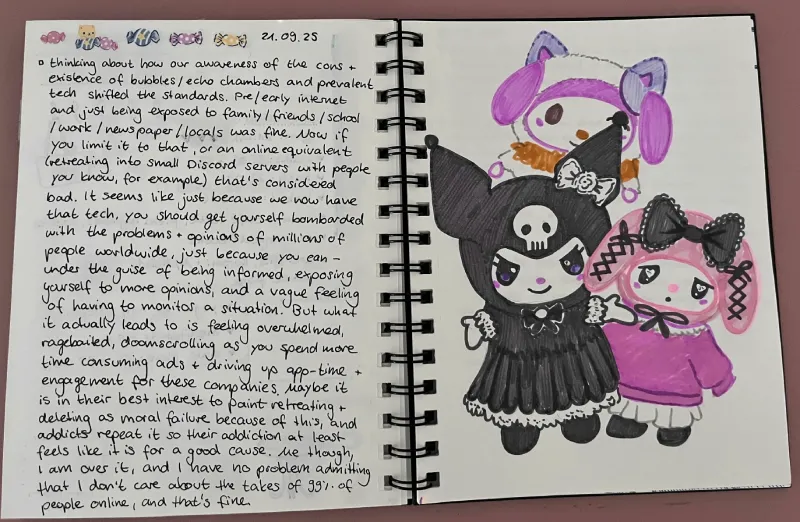 21.09.25
thinking about how our awareness of the cons +
existence of bubbles/echo chambers and prevalent
tech shifted the standards. Pre/early internet
and just being exposed to family/friends/school
/work/newspaper/locals was fine. Now if
you limit it to that, or an online equivalent
(retreating into small Discord servers with people
you know, for example) that's considered
bad. It seems like just because we now have
that tech, you should get yourself bombarded
with the problems + opinions of millions of
people worldwide, just because you can -
under the guise of being informed, exposing
yourself to more opinions, and a vague feeling
of having to monitos a situation. But what
it actually leads to is feeling overwhelmed,
ragebaited, doomscrolling as you spend more
time consuming ads + driving up app-time +
engagement for these companies. Maybe it
is in their best interest to paint retreating +
deleting as moral failure because of this, and
addicts repeat it so their addiction at least
feels like it is for a good cause. Me though,
I am over it, and I have no problem admitting
that I don't care about the takes of 99% of
people online, and that's fine.